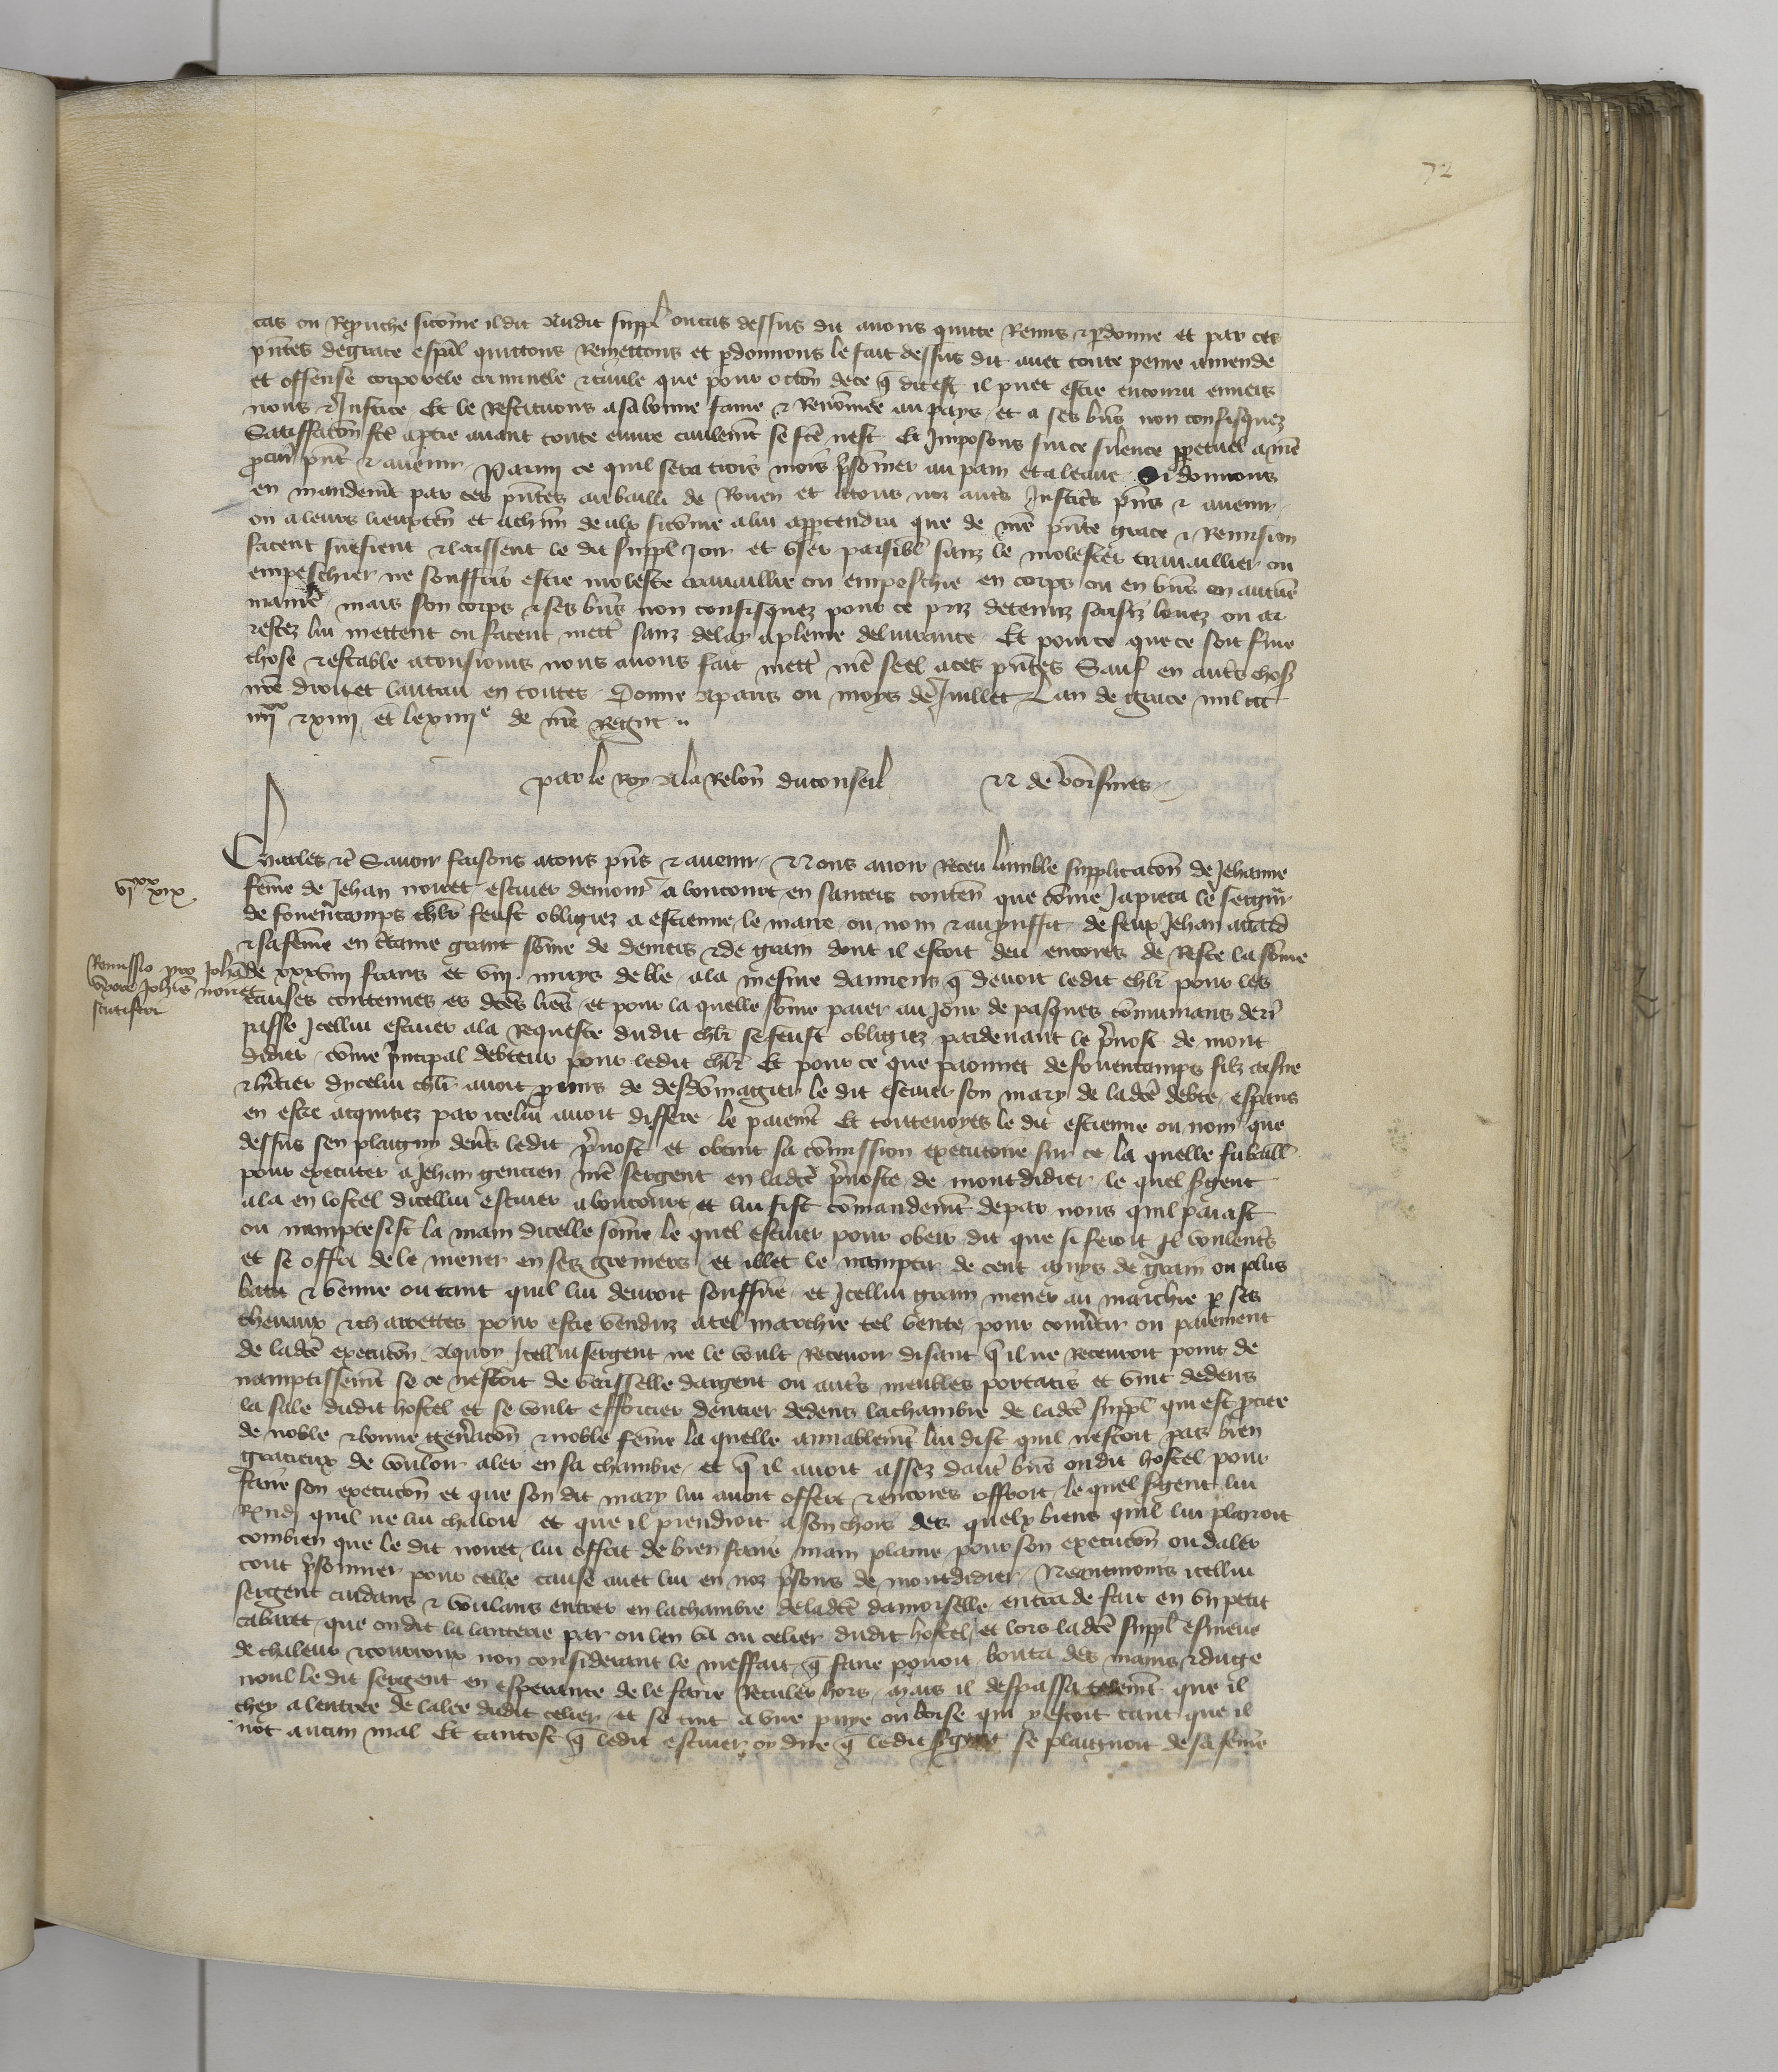 72
cas ou Repruche sicome il dit Audit suppl ou cas dessus dit auons quitte Remis & pdonne et par ces
pntes de grace espal quittons Remettons et pdonnons le fait dessus dit auec toute peine amende
et offense corporele criminele & ciuile que pour occon de ce q dit est il puet estre encouru enuers
nous & Justice Et le Restituons a sa bonne fame & Renomee au pays et a ses bns non confisquez
Satisfacon fce aptie auant toute euure ciuilemt se fce nest Et Imposons sur ce silence ppetuel a nre
pcur pnt & auenir Parmi ce quil sera trois mois prisonnier au pain et a leaue Si donnons
en mandemt par ces pntes au bailli de Rouen et a tous noz autres Justiciers pns & auenir
ou a leurs lieuxten et a chun deulx sicome a lui appartendra que de nre pnte grace & Remission
facent sueffrent & laissent le dit suppl Joir et vser paisibl sanz le molester trauaillier ou
empeschier ne souffrir estre moleste trauaillie ou empeschie en corps ou en bns en aucune
maniere mais son corps & ses bns non confisquez pour ce priz detenuz saisiz leuez ou ar
restez lui mettent ou facent mettre sanz delay a pleine deliurance Et pour ce que ce soit ferme
chose & estable a tousiours nous auons fait mettre nre seel a ces pntes Sauf en autres choses
nre droit et lautrui en toutes Donne a paris ou moys de Juillet Lan de grace mil ccc
iiijxx & xiiij et le xiiije de nre Regne
par le Roy a la Relon du conseil
Charles &c Sauoir faisons a tous pns & auenir Nous auoir Receu lumble supplicacon de Jehanne
vjxx xix
feme de Jehan nouret escuier demour a boncourt en sancers conten que come Japieca le seigur
de fouencamps chlr feust obligiez a estienne le maire ou nom & au prouffit de feux Jehan
& sa feme en certaine grant some de deniers & de grain dont il estoit deu encores de Reste la some
Remissio pro Johna
vxore Johis nouret
scutiferi
de xxxviij frans et viij muys de ble a la mesure damiens q deuoit ledit chlr pour les
causes contenues es dces lres et pour la quelle some paier au Jour de pasques comunians derr
passe Icellui escuier a la Requeste dudit chlr se feust obligiez pardeuant le preuost de mont
didier come principal debteur pour ledit chlr Et pour ce que paonnet de fouencamps filz aisne
& heritier dycelui chlr auoit promis de desdomagier le dit escuier son mary de ladce debte esperans
en estre acquittez par icelui auoit differe le paiemt Et toutteuoyes le dit estienne ou nom que
dessus sen plaigny deuers ledit preuost et obtint sa comission executoire sur ce la quelle fu baill
pour executer a Jehan gencien nre sergent en ladce preuoste de montdidier le quel sergent
ala en lostel dicellui escuier a boncourt et lui fist comandemt depar nous quil paiast
ou namptesist la main dicelle some le quel escuier pour obeir dit que si feroit Il voulentiers
et se offri de le mener en ses greniers et illec le namptir de cent muys de grain ou plus
batu & venne ou tant quil lui deuroit souffire et Icellui grain mener au marchie par ses
cheuaux & charrettes pour estre venduz a tel marchie tel vente pour conuertir ou paiement
de ladce execucon A quoy Icellui sergent ne le voult Receuoir disant q il ne Receuroit point de
namptissemt se ce nestoit de vaisselle dargent ou autres meubles portatis et vint dedens
la sale dudit hostel et se voult efforcier dentrer dedens la chambre de ladce suppl qui est preee
de noble & bonne generacon & noble feme la quelle amiablemt lui dist quil nestoit pas bien
gracieux de vouloir aler en sa chambre et q il auoit assez dautres bns oudit hostel pour
faire son execucon et que son dit mary lui auoit offert & encores offroit le quel sergent lui
Rendi quil ne lui chaloit et que il prendroit a son chois des quelx biens quil lui plairoit
combien que le dit nouret lui offrit de bien faire main plaine pour son execucon ou daler
tout prisonnier pour celle cause auec lui en noz prisons de montdidier Neantmoins icellui
sergent cuidans & voulans entrer en la chambre de ladce damoiselle entra de fait en vn petit
cabaret que on dit la lanterie par ou len va ou celier dudit hostel et lors ladce suppl esmeue
de chaleur & courroux non considerant le meffait q faire pouoit bouta des mains & du ge
noul le dit sergent en esperance de le faire Reculer hors mais il despassa telemt que il
chey a lentree de lalee dudit celier et se tint a vne puye ou boise qui y estoit tant que il
not aucun mal Et tantost q ledit escuier oy dire q ledit sergent se plaignoit de sa feme